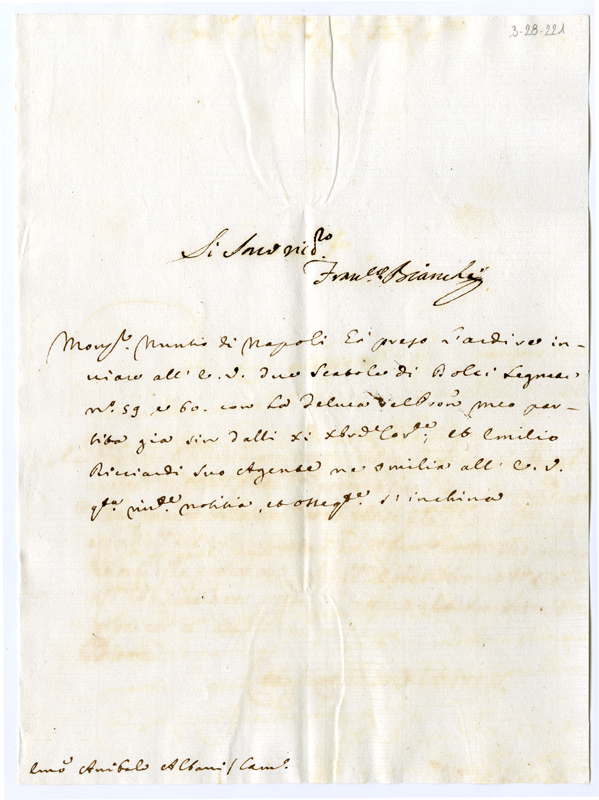 3-28-221
Si sono ric.to
Fran.co Bianchi
Mons.r Nuntio di Napoli hà preso l'ardire in-
viare all' E. V. due Scatole di Dolci segnate
n.o 59 e 60. con la par-
tita già sin dalli xi xbre Cor.te; et Emilio
Ricciardi suo Agente ne omilia all' E. V.
q.ta notitia, et osseq.te s'inchina
Em.o Anibale Albani / Cam.o